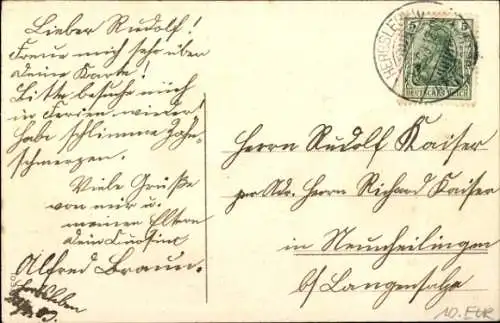 Lieber Rudolf!
Freue mich sehr über
deine Karte!
Bitte besuche mich
in Ferien wieder!
habe schlimme Zahn-
schmerzen.
Viele Grüße
von mir u.
meinen Eltern
dein Cousine
Alfred Braun.
5
DEUTSCHES REICH
Herrn Rudolf Kaiser
per Adr. Herrn Richard Kaiser
in Neunheilingen
b/ Langensalza
10.- EUR